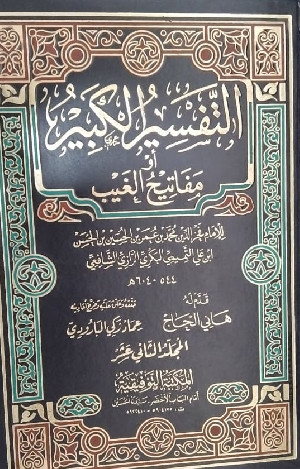 التفسير الكبير
أو
مفاتيح الغيب
للإمام فخر الدين محمد بن عمر بن الحسين بن الحسن
ابن علي التميمي البكري الرازي الشافعي
٥٤٤ - ٦٠٤ هـ
قدم له
هاني الحاج
حققه وعلق عليه وخرج أحاديثه
عماد زكي البارودي
المجلد الثاني عشر
المكتبة التوفيقية
أمام الباب الأخضر - سيدنا الحسين